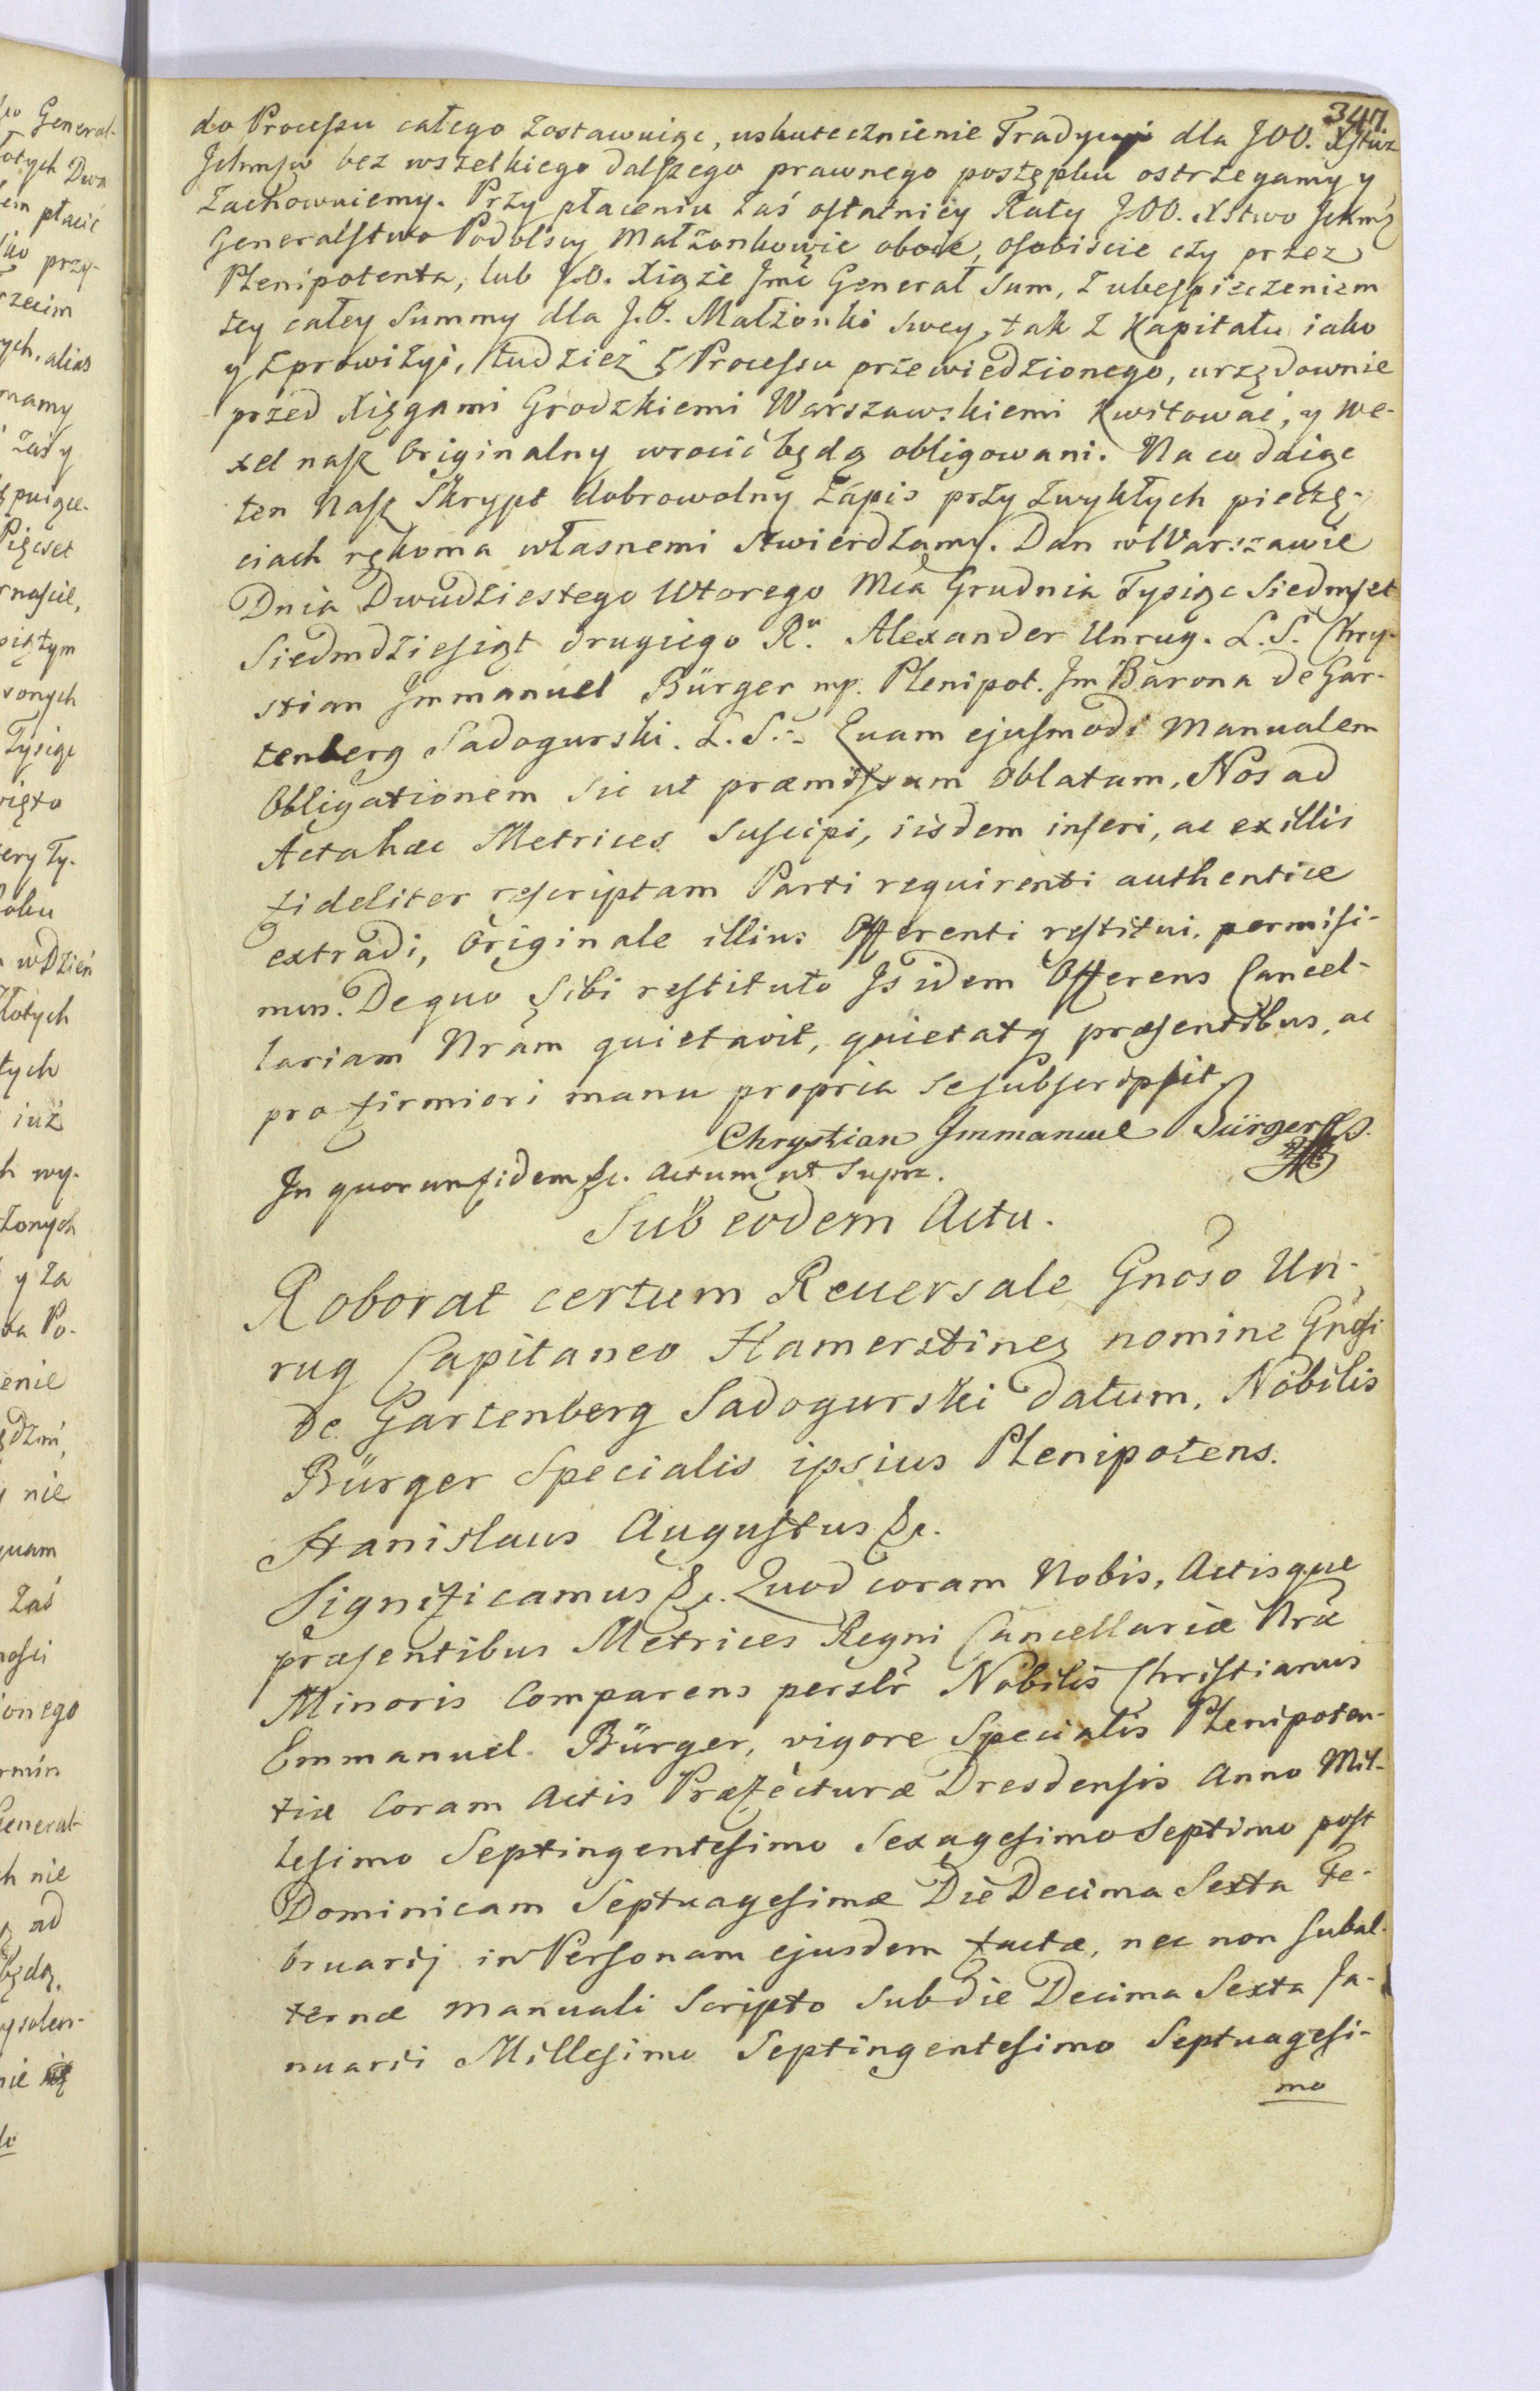 347
do Processu całego zostawuiąc, uskutecznienie Tradycyi dla JOO. Xstwa
Jchmsw bez wszelkiego dalszego prawnego postępku ostrzegamy y
zachowuiemy. Przy płaceniu zaś ostatniey Raty JOO. Xstwo Jchmć
Generalstwo Podolscy Małżonkowie oboie, osobiscie czy przez
Plenipotenta, lub J.O. Xiąże Jmć Generał Sum, z ubespieczeniem
tey całey Summy dla J.O. Małżonki swey, tak z Kapitału iako
y z prowizyi, tudzież z Processu przewiedzionego, urzędownie
przed Xięgami Grodzkiemi Warszawskiemi Kwitować, y we-
xel nasz Originalny wrocić będą obligowani. Na co daiąc
ten nasz Skrypt dobrowolny zapis przy zwykłych pieczę-
ciach rękoma własnemi stwierdzamy. Dan w Warszawie
Dnia Dwudziestego Wtorego Mca Grudnia Tysiąc Siedmset
Siedmdziesiąt drugiego Ru. Alexander Unrug. L.S. Chry-
stian Jmmanuel Bürger mp. Plenipot. Jm Barona de Gar-
tenberg Sadogurski. L.S.- Quam ejusmodi Manualem
Obligationem sic ut præmissum oblatam, Nos ad
Acta hæc Metrices suscipi, iisdem inseri, ac ex illis
fideliter rescriptam Parti requirenti authentice
extradi, Originale illius Offerenti restitui permisi-
mus. De quo sibi restituto Isidem Offerens Cancel-
lariam Nram quietavit, quietatq præsentibus, ac
pro firmiori manu propria se subscripsit.
Chrystian Jmmanuel Bürger
In quorum fidem &c. Actum ut Supra.
Sub eodem Actu.
Roborat certum Reuersale Gnoso Un-
rug Capitaneo Hamerstinen nomine Gnosi
de Gartenberg Sadogurski datum, Nobilis
Bürger Specialis ipsius Plenipotens.
Stanislaus Augustus &c.
Significamus &c. Quod coram Nobis, Actisque
præsentibus Metrices Regni Cancellariæ Nræ
Minoris Comparens persltr Nobilis Christianus
Emmanuel Bürger, vigore Specialis Plenipoten-
tiæ Coram Actis Præfecturæ Dresdensis Anno Mil-
lesimo Septingentesimo Sexagesimo Septimo post
Dominicam Septuagesimæ Die Decima Sexta Fe-
bruarij in Personam ejusdem factæ, nec non subal-
ternæ manuali Scripto sub die Decima Sexta Ja-
nuarii Millesimo Septingentesimo Septuagesi-
mo